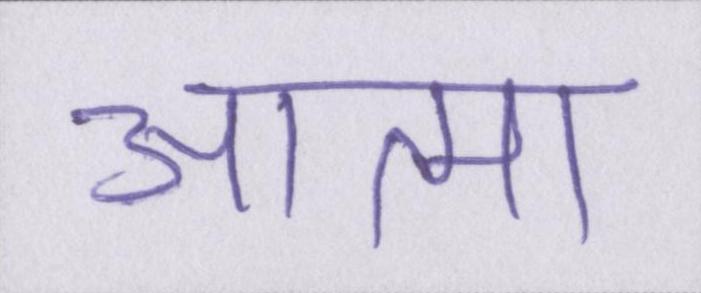 आत्मा